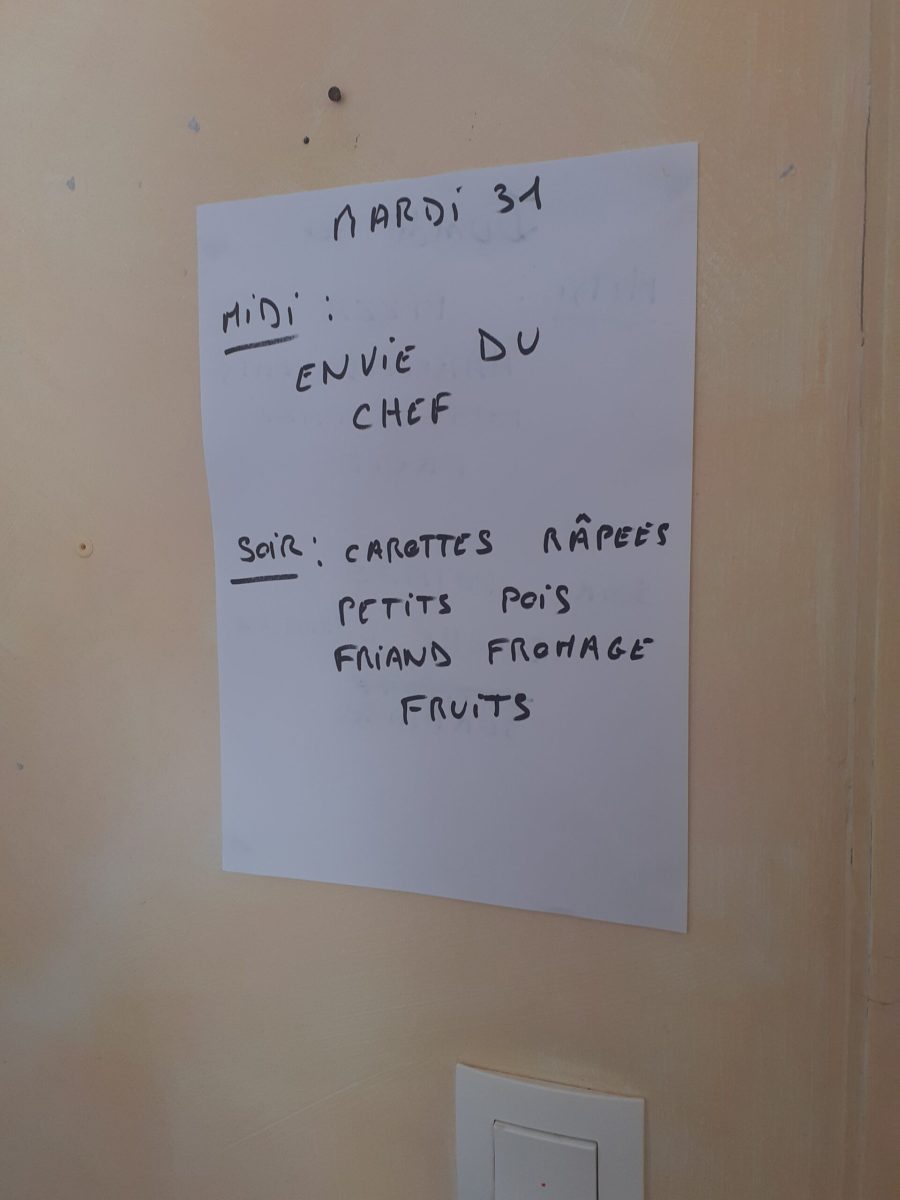 MARDi 31
MiDi :
ENViE DU
CHEF
SOiR : CAROTTES RÂPEES
PETiTS POiS
FRiAND FROMAGE
FRUiTS